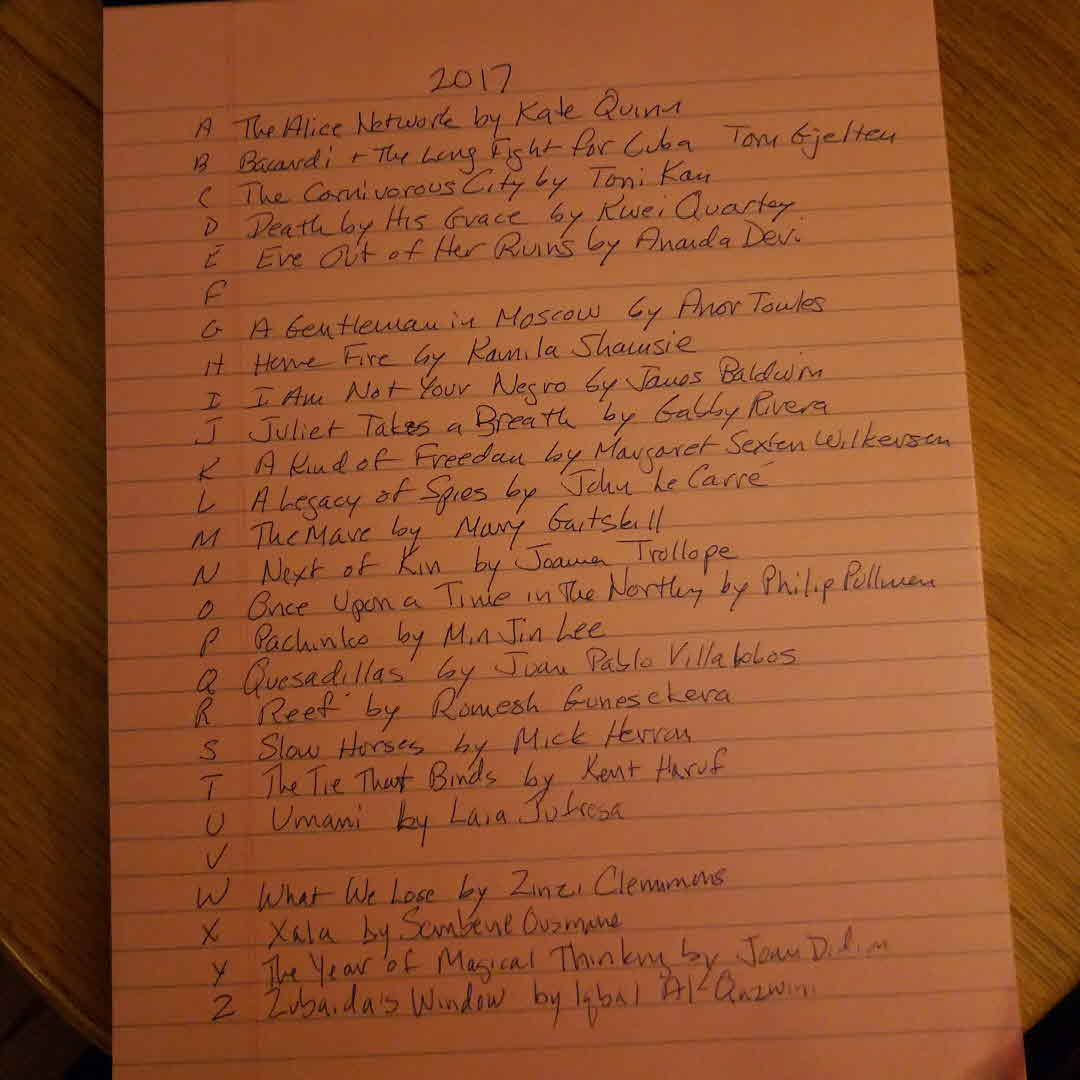 2017
A The Alice Network by Kate Quinn
B Bacardi + The Long Fight for Cuba Tom Gjelten
C The Carnivorous City by Toni Kan
D Death by His Grace by Kwei Quartey
E Eve Out of Her Ruins by Ananda Devi
F
G A Gentleman in Moscow by Amor Towles
H Home Fire by Kamila Shamsie
I I Am Not Your Negro by James Baldwin
J Juliet Takes a Breath by Gabby Rivera
K A Kind of Freedom by Margaret Sexton Wilkerson
L A Legacy of Spies by John Le Carré
M The Mare by Mary Gaitskill
N Next of Kin by Joanna Trollope
O Once Upon a Time in The North by Philip Pullman
P Pachinko by Min Jin Lee
Q Quesadillas by Juan Pablo Villalobos
R Reef by Romesh Gunesekera
S Slow Horses by Mick Herron
T The Tie That Binds by Kent Haruf
U Umami by Laia Jufresa
V
W What We Lose by Zinzi Clemmons
X Xala by Sembene Ousmane
Y The Year of Magical Thinking by Joan Didion
Z Zubaida's Window by Iqbal Al-Qazwini